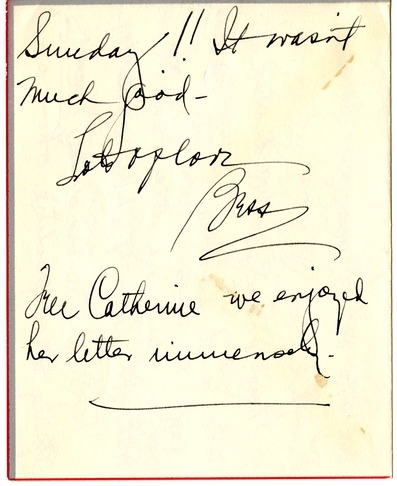 Sunday!! It wasn't
much good -
Lots of love
Bess
Tell Catherine we enjoyed
her letter immensely.